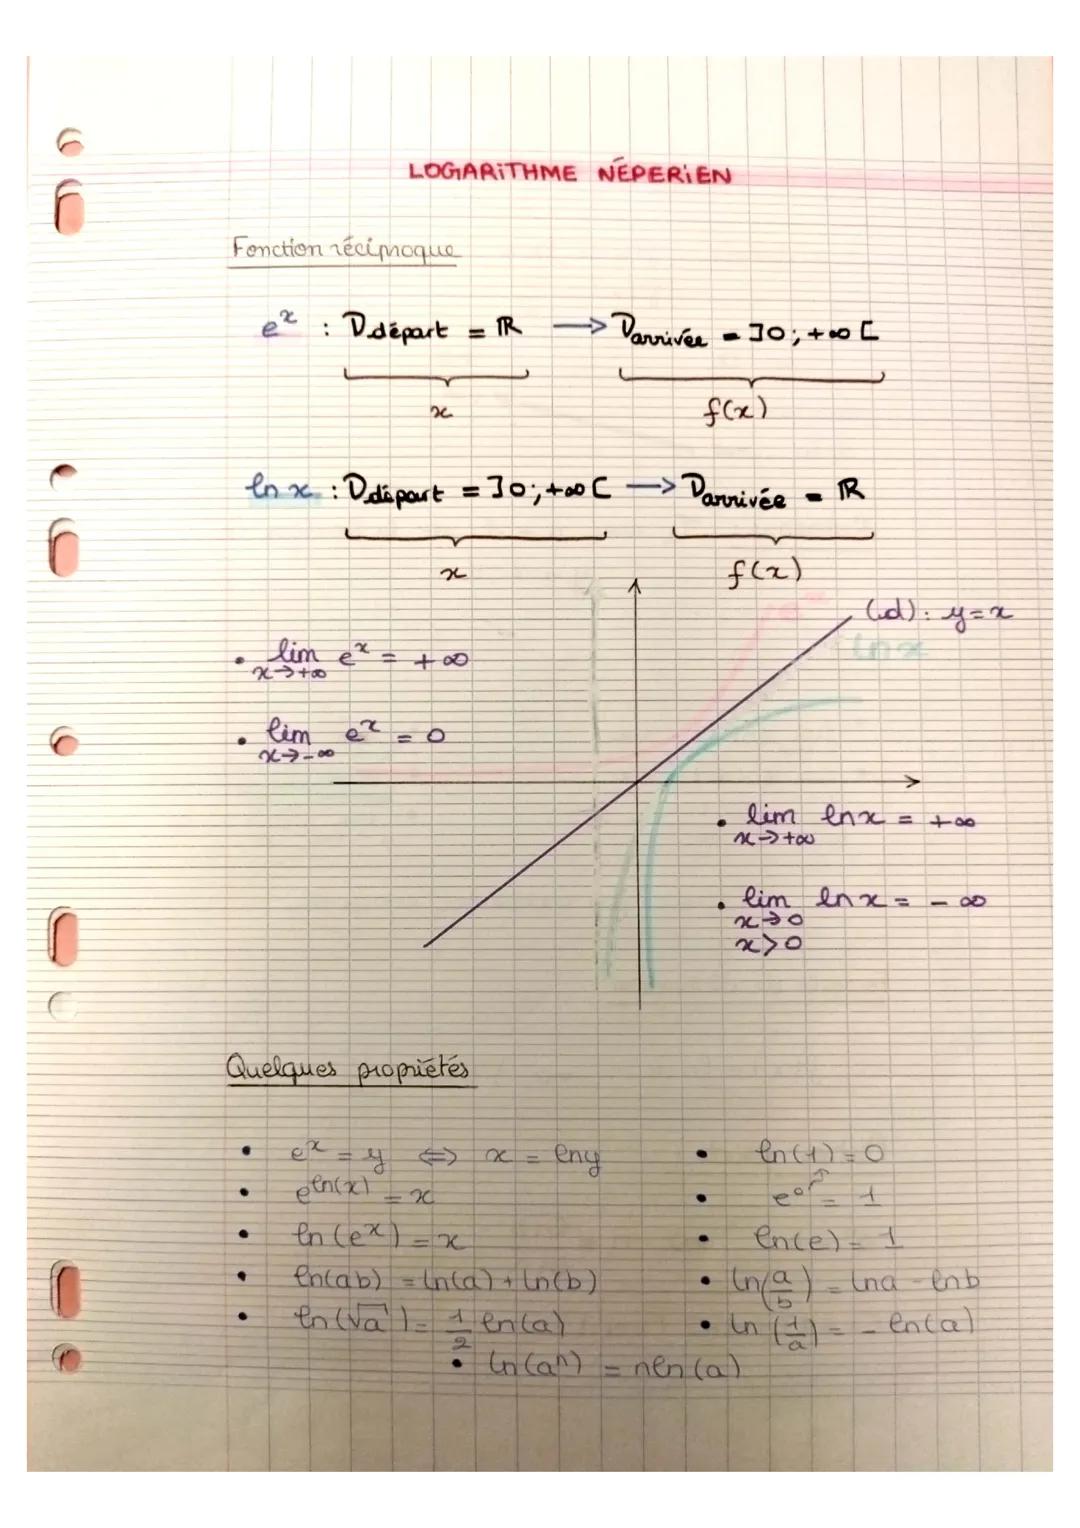 LOGARITHME NÉPERIEN
Fonction réciproque
eˣ : D départ = ℝ → D arrivée = ]0; +∞[
x
f(x)
ln x : D départ = ]0; +∞[ → D arrivée = ℝ
x
f(x)
(d) : y = x
ln x
• lim eˣ = +∞
x→+∞
• lim eˣ = 0
x→-∞
• lim ln x = +∞
x→+∞
• lim ln x = -∞
x→0
x>0
Quelques propriétés
• eˣ = y ⇔ x = ln y
• e^ln(x) = x
• ln(eˣ) = x
• ln(ab) = ln(a) + ln(b)
• ln(√a) = 1/2 ln(a)
• ln(1) = 0
• e⁰ = 1
• ln(e) = 1
• ln(a/b) = ln a - ln b
• ln(1/a) = - ln(a)
• ln(aⁿ) = n ln(a)